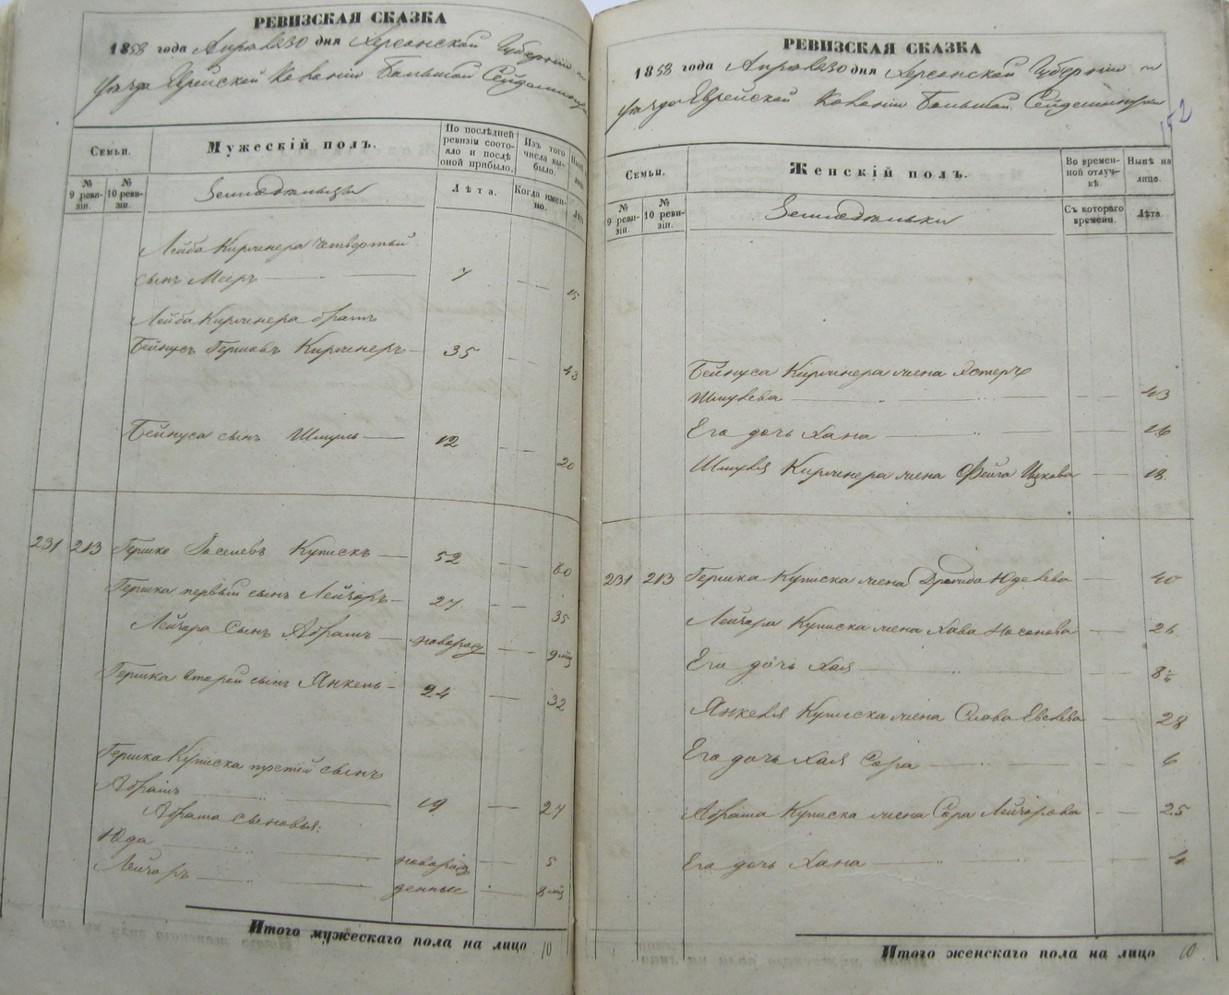 РЕВИЗСКАЯ СКАЗКА
1858 года Апреля 30 дня Херсонской Губерніи
уезда Еврейской Колоніи Большой Сейдеминухи
Семьи.
Мужескій полъ.
По послѣдней ревизіи состояло и послѣ оной прибыло.
Изъ того числа выбыло.
№ 9 ревизіи.
№ 10 ревизіи.
Земледѣльцы
Лѣта.
Когда именно.
Лейба Киржнера четвертый
сынъ Меер 7 15
Лейба Киржнера братъ
Бейнусъ Гершевъ Киржнеръ 35 43
Бейнуса сынъ Шмуль 12 20
231 213 Гершко Іоселевъ Купискъ 52 60
Гершка первый сынъ Лейзоръ 27 35
Лейзора Сынъ Абрамъ новорож 9 мѣ
Гершка вторый сынъ Янкель 24 32
Гершка Куписка третій сынъ
Абрамъ 19 27
Абрама сыновья:
Юда новорож 5
Лейзоръ денные 8 мѣ
Итого мужескаго пола на лицо 10
РЕВИЗСКАЯ СКАЗКА
1858 года Апреля 30 дня Херсонской Губерніи
уезда Еврейской Колоніи Большой Сейдеминухи
152
Семьи.
Женскій полъ.
Во временной отлучкѣ.
Нынѣ на лицо.
№ 9 ревизіи.
№ 10 ревизіи.
Земледѣльки
Съ котораго времени.
Лѣта.
Бейнуса Киржнера жена Эстеръ
Шмулева 43
Его дочь Хана 16
Шмуля Киржнера жена Фейга Ицкова 18
231 213 Гершка Куписка жена Юделева 40
Лейзора Куписка жена Хава Носонова 26
Его дочь Хая 8
Янкеля Куписка жена Слава 28
Его дочь Хая Сора 6
Абрама Куписка жена Сора Лейзорова 25
Его дочь Хана 4
Итого женскаго пола на лицо 10